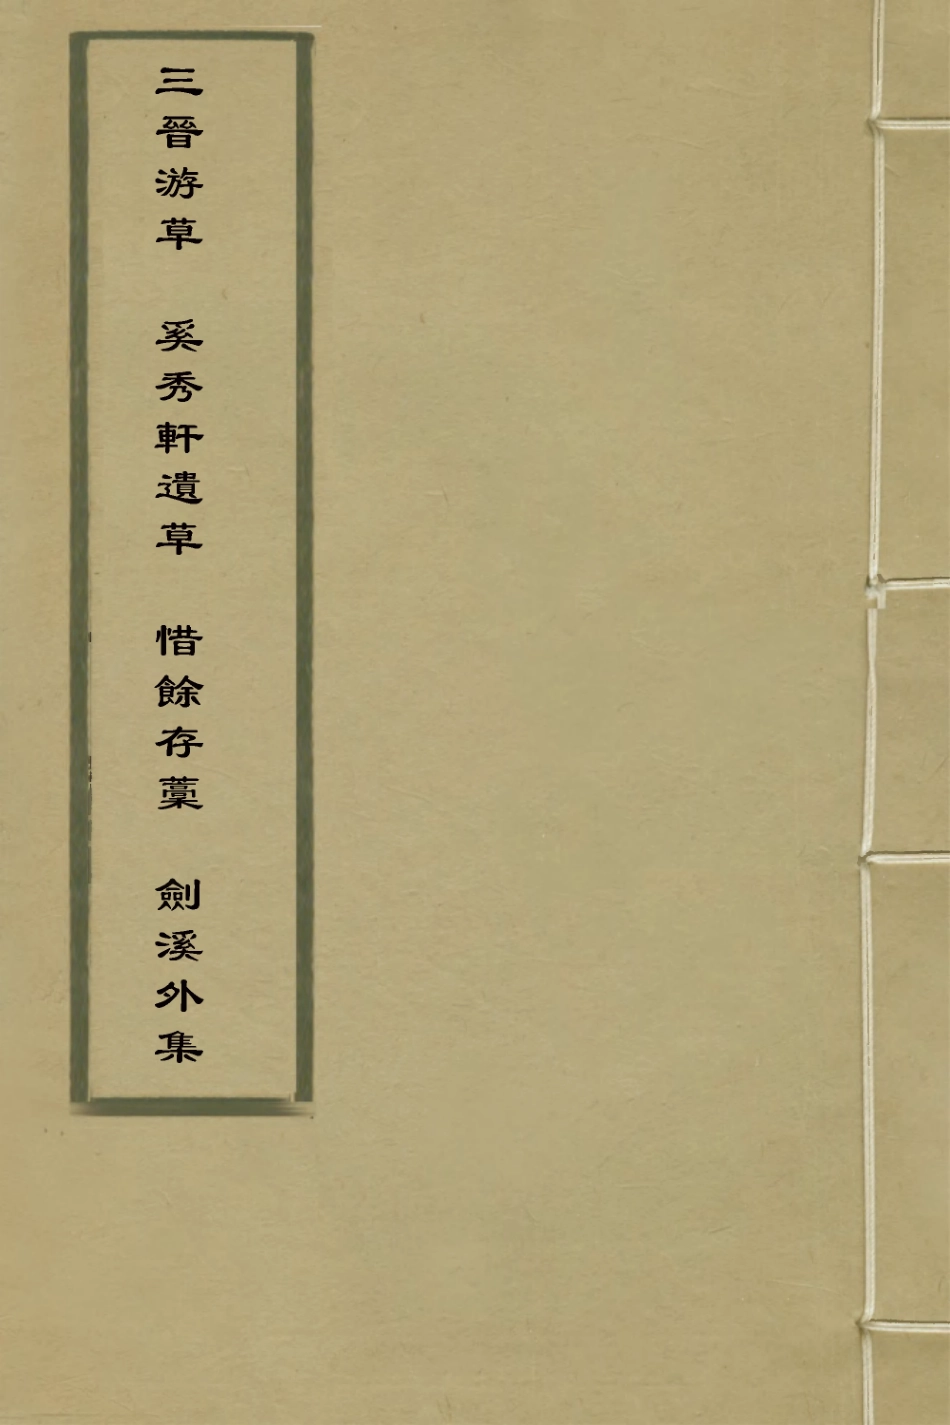 三晉游草　奚秀軒遺草　惜餘存藁　劍溪外集